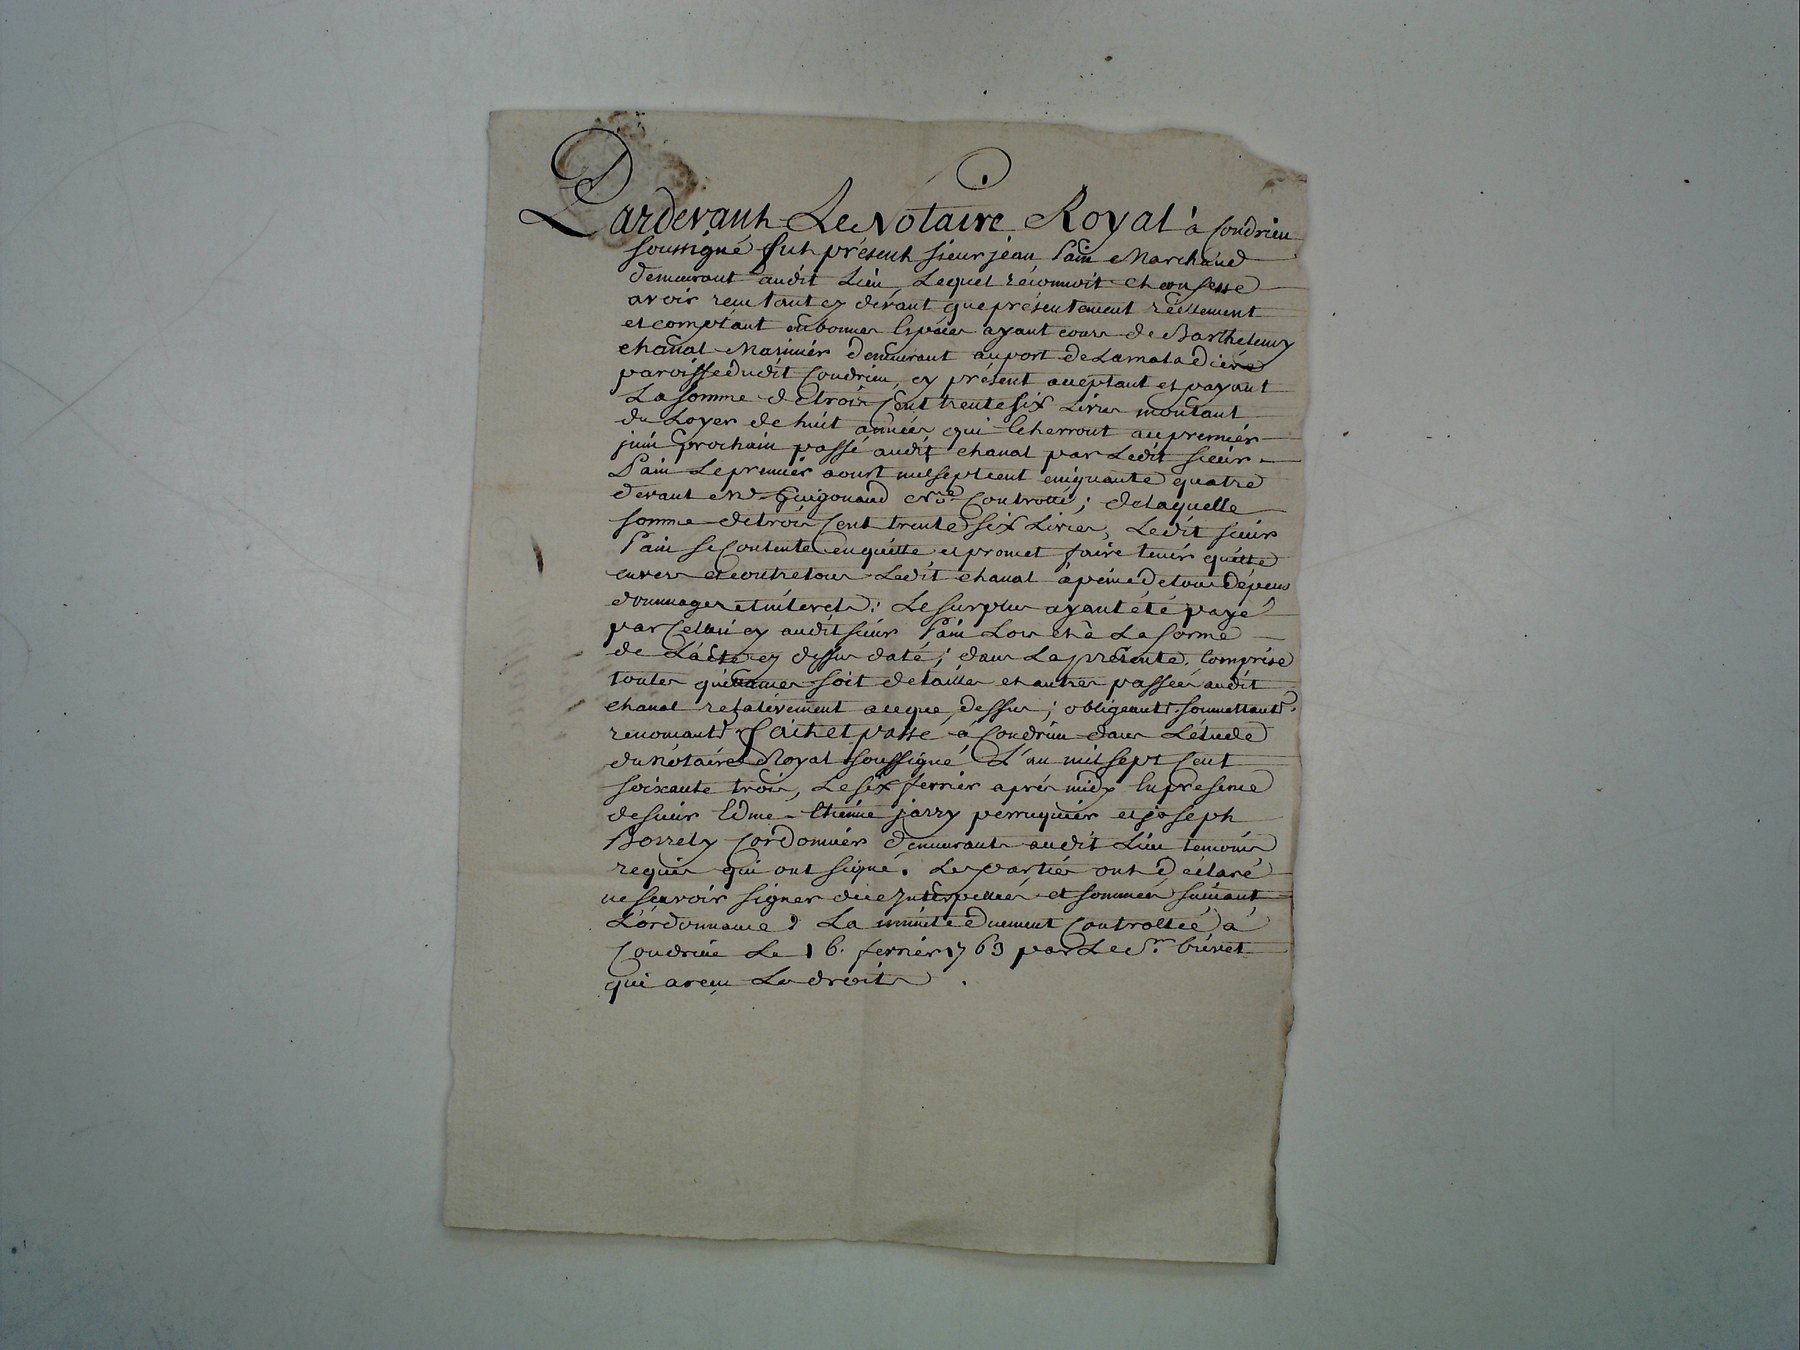 Pardevant Le Notaire Royal à Condrieu
soussigné fut présent sieur jean Pain Marchand
demeurant audit Lieu, Lequel réconnoit et confesse
avoir recu tant cy devant que présentement réellement
et comptant en bonnes Espéces ayant cours de Barthelemy
chanal Marinier demeurant au port de Lamaladiere
paroisse dudit Condrieu, cy présent acceptant et payant
La somme de trois Cent trente six Livres montant
du Loyer de huit années qui Echerront au premier
juin prochain passé audit chanal par Ledit sieur
Pain Le premier aoust mil sept cent cinquante quatre
devant Me Guigonand Nre Controllé; de laquelle
somme de trois Cent trente six Livres, Ledit sieur
Pain se Contente en quitte et promet faire tenir quitte
envers et contre tous Ledit chanal à peine de tous dépens
dommages et intérets; Le surplus ayant été payé
par Celui cy audit sieur Pain Lors et à La forme
de L'acte cy dessus daté; dans La présente Comprise
toutes quittances soit detailles et autres passées audit
chanal relativement a ce que dessus; obligeant. soumettant.
renonçant. Fait et passé à Condrieu dans L'étude
du Notaire Royal soussigné L'an mil sept Cent
soixante trois, Le six fevrier aprés midy En presence
de sieur Edme Etienne jarry perruquier et joseph
Borrely Cordonnier demeurants audit Lieu temoins
requis qui ont signé. Les parties ont déclaré
ne scavoir signer de ce Interpellées et sommées suivant
L'ordonnance; La minute duement Controllée à
Condrieu Le 16. fevrier 1763 par Le Sr.
qui a reçu Les droits.